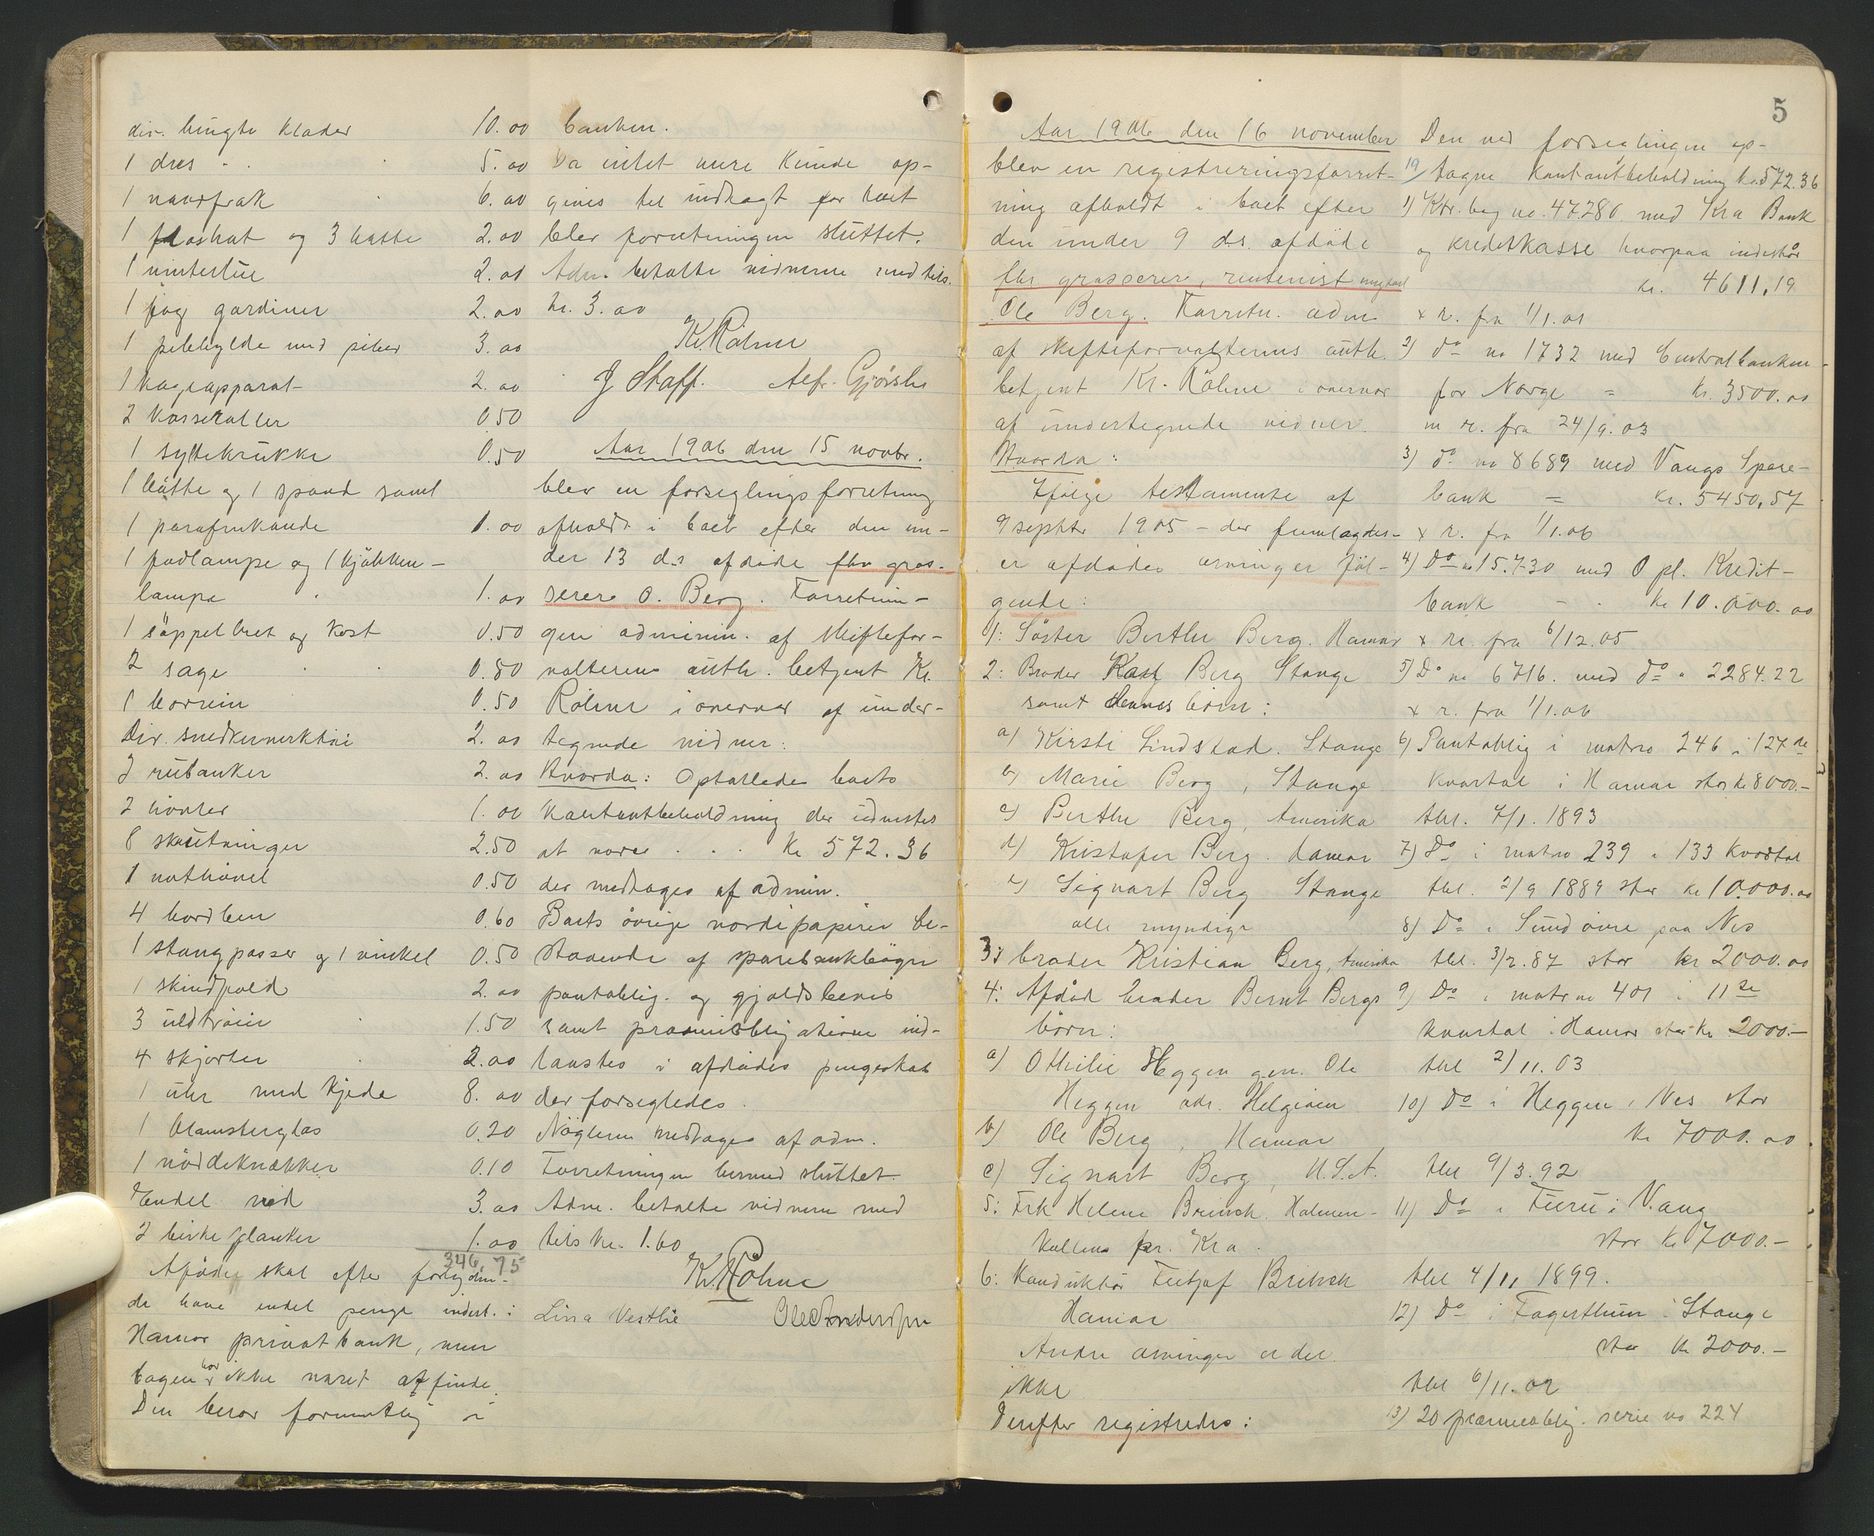 div. brugte klæder 10.00
1 dres 5.00
1 vaarfrak 6.00
1 floshat og 3 hatte 2.00
1 vinterlue 2.00
1 fag gardiner 2.00
1 pibehylde med piber 3.00
1 kogeapparat 2.00
2 kasseroller 0.50
1 syltekrukke 0.50
1 bøtte og 1 spand samt
1 parafinkande 1.00
1 fodlampe og 1 kjøkken-
lampe 1.00
1 søppelbret og kost 0.50
2 sage 0.80
1 borvin 0.50
Div. snedkerverktøi 2.00
2 rubanker 2.00
2 høvler 1.00
8 skrutvinger 2.50
1 nothøvel 0.50
4 bordben 0.60
1 stangpasser og 1 vinkel 0.50
1 skindfeld 2.00
3 uldtrøier 1.50
4 skjorter 2.00
1 uhr med kjede 8.00
1 blomsterglas 0.20
1 nøddeknækker 0.10
Endel ved 3.00
2 birke planker 1.00
346,75
Afdøde skal efter forlyden-
de have endel penge indest. i
Hamar privatbank, men
bogen har ikke været at finde.
Den beror formentlig i
banken.
Da intet mere kunde op-
gives til indtægt for boet
blev forretningen sluttet.
Adm. betalte vidnerne med tils.
kr. 3.00
Kr. Røhne
J Staff. Alfr. Gjørslie
Aar 1906 den 15 novbr.
blev en forseglingsforretning
afholdt i boet efter den un-
der 13 d.s afdøde fhv gros-
serer O. Berg. Forretnin-
gen adminin. af skiftefor-
valterens auth. betjent Kr.
Røhne i overvær af under-
tegnede vidner:
Hvorda: Optaltedes boets
Kontantbeholdning der udvistes
at være . . . Kr 572.36
der medtoges af admin.
Boets øvrige værdipapirer be-
staaende af sparebankbøger
pantoblig. og gjældsbevis
samt præmieobligationer ind-
laastes i afdødes pengeskab
der forsegledes.
Nøglerne medtoges af adm.
Forretningen hermed sluttet.
Adm. betalte vidnerne med
tils kr. 1.60
Kr. Røhne
Lina Vestlie Ole Andersen
5
Aar 1906 den 16 november
blev en registreringsforret-
ning afholdt i boet efter
den under 9 d.s. afdøde
fhv grosserer, rentenist ungkarl
Ole Berg. Forretn. adm
af skifteforvalterens auth.
betjent Kr. Røhne i overvær
af undertegnede vidner.
Hvorda:
Ifølge testamente af
9 septbr 1905 – der fremlagdes –
er afdødes arvinger føl-
gende:
1: Søster Berthe Berg. Hamar
2: Broder Karl Berg Stange
samt dennes børn:
a) Kirsti Lindstad. Stange
b) Marie Berg, Stange
c) Berthe Berg, Amerika
d) Kristofer Berg. Hamar
e) Sigvart Berg Stange
alle myndige
3: broder Kristian Berg, Amerika
4: Afdød broder Bernt Bergs
børn:
a) Othilie Heggen gm. Ole
Heggen adr. Helgøen
b) Ole Berg, Hamar
c) Sigvart Berg, U.S.A.
5: Frk Helene Brinch. Holmen-
kollen pr. Kra.
6: Konduktør Fritjof Brinch
Hamar
Andre arvinger er der
ikke
Derefter registredes:
Den ved forseglingen op-
19) tagne Kontantbeholdning kr. 572.36
1) Ktr. bog no. 47280 med Kra Bank
og kreditkasse hvorpaa indestår
kr. 4611,19
x r. fra 1/1.01
2) do no 1732 med Centralbanken
for Norge = kr. 3500.00
m r. fra 24/9.03
3) do no 8689 med Vangs Spare-
bank = kr. 5450,57
x r. fra 1/1.06
4) Do no 15.730 med Opl. Kredit-
bank - . kr 10.000.00
x r. fra 6/12.05
5) Do no 6716. med do " 2284.22
x r. fra 1/1.06
6) Pantoblig i matrno 246 i 127de
kvartal i Hamar stor kr 8000.–
thl. 7/1. 1893
7) Do i matrno 239 i 133 kvartal
thl. 2/9 1889 stor kr 10.000.00
8) Do i Sund øvre paa Nes
thl. 3/2.87 stor kr 2000.00
9) Do i matr no 401 i 11te
kvartal i Hamar stor kr 2000.–
thl 2/11.03
10) Do i Heggen, Nes stor
kr 7000.00
thl 9/3.92
11) Do i Furu i Vang
stor kr 7000.–
thl 4/11 1899.
12) Do i Fagerthun i Stange
stor kr 2000.–
thl 6/11.02
13) 20 præmieoblig. serie no 224